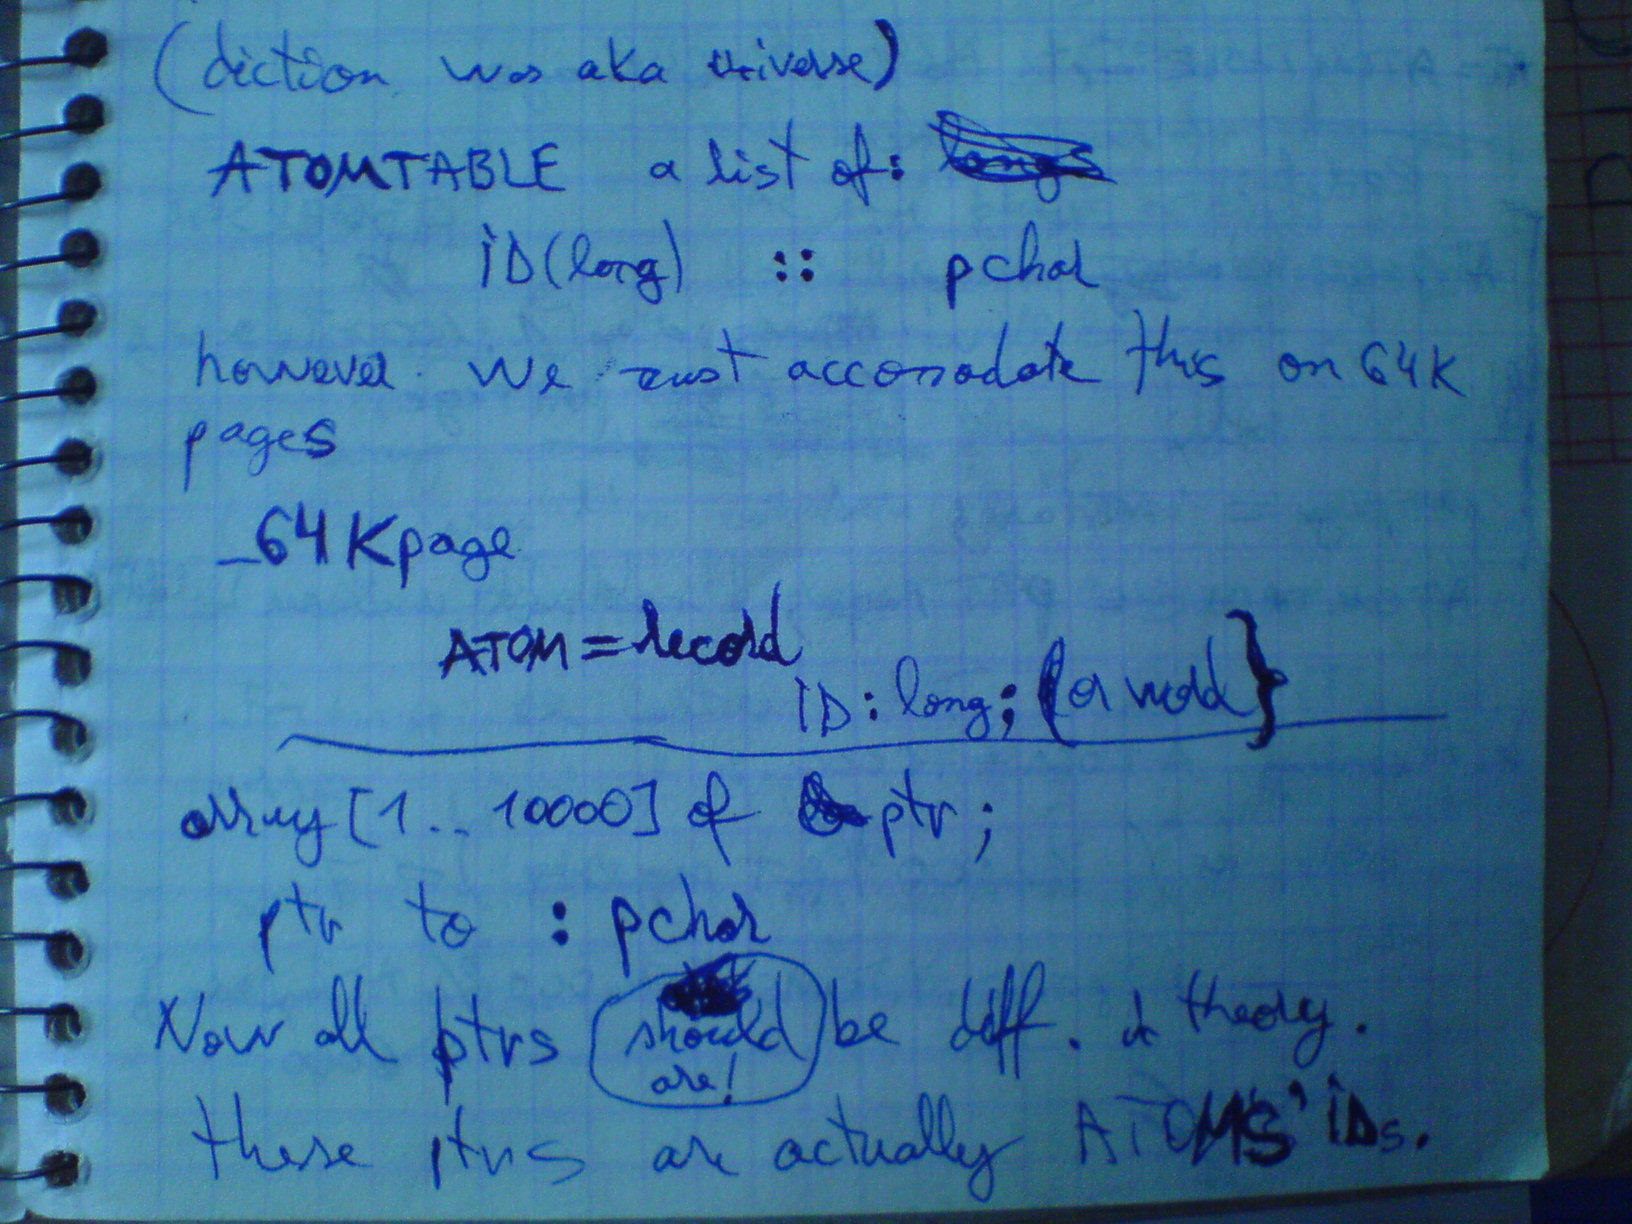 (diction was aka universe)
ATOMTABLE a list of: longs
ID(long) :: pchar
however we must accomodate this on 64K
pages
_64Kpage
ATOM = record
ID: long; {or word}
array [1.. 10000] of ptr;
ptr to : pchar
Now all ptrs should be diff. in theory.
are!
these ptrs are actually ATOMS' IDs.